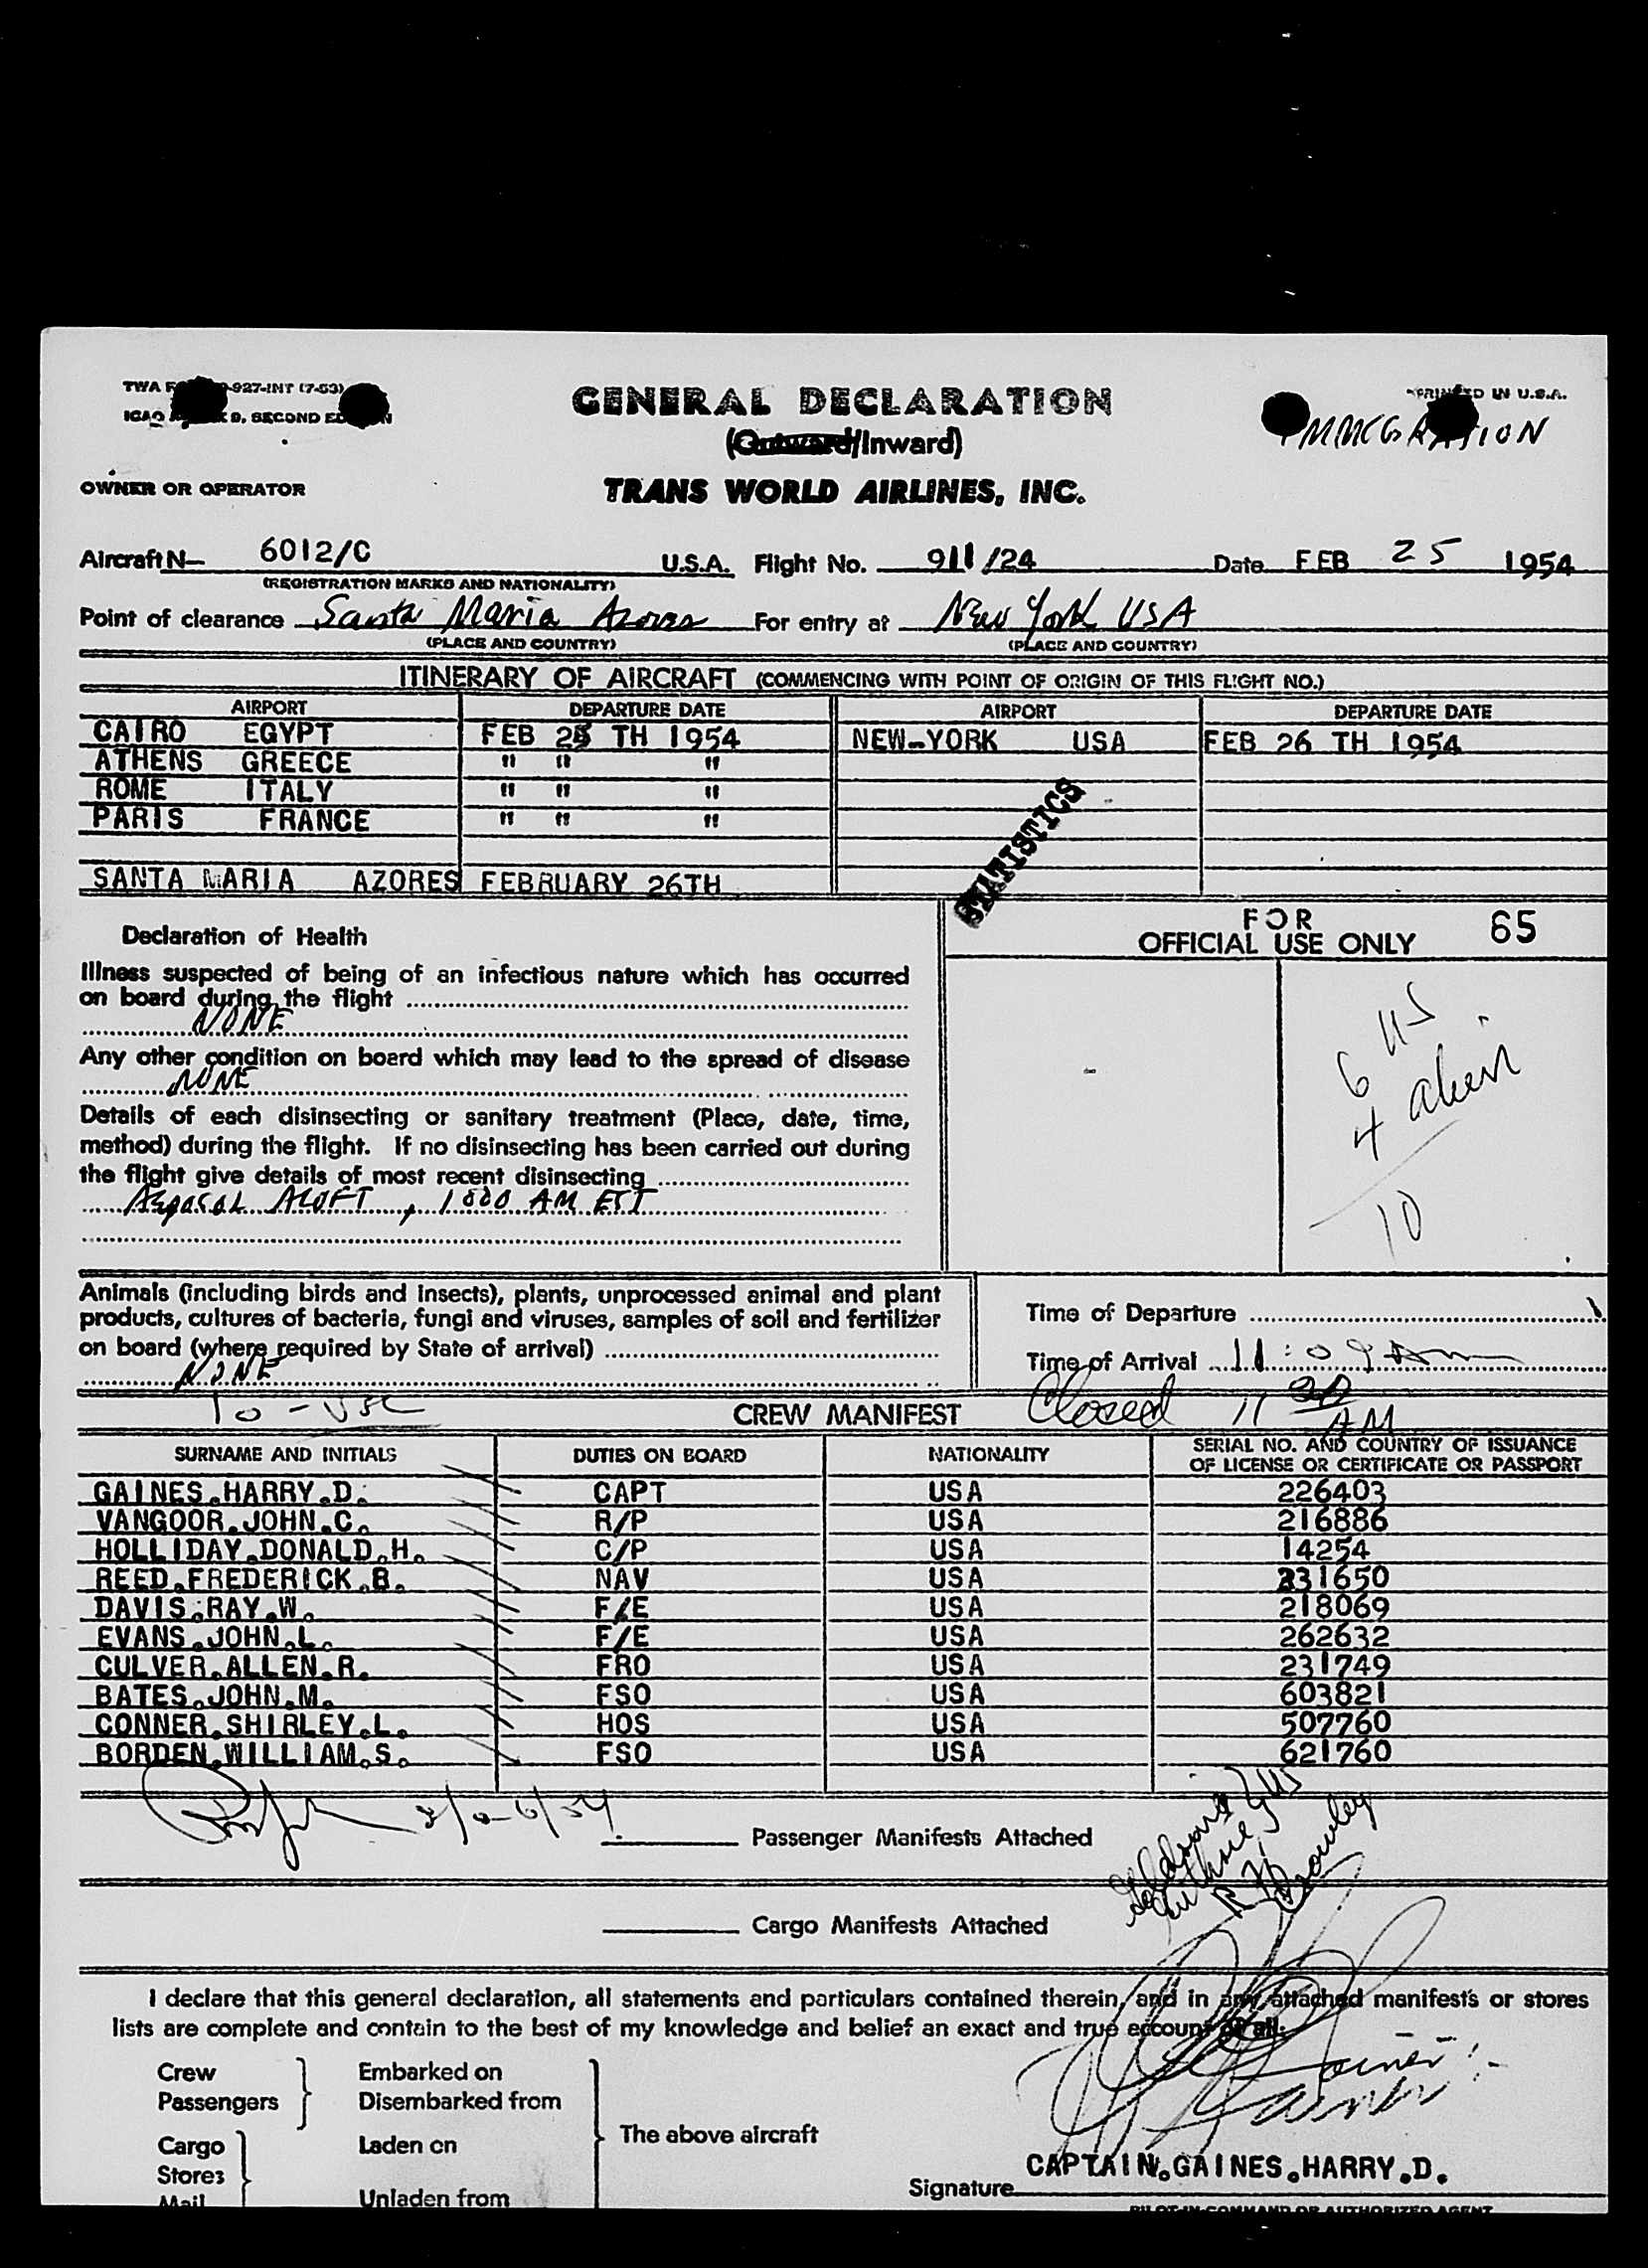 TWA F 927-INT (7-53)
ICAO D. SECOND ED N
GENERAL DECLARATION
(Outward/Inward)
PRINTED IN U.S.A.
IMMIGRATION
OWNER OR OPERATOR
TRANS WORLD AIRLINES, INC.
Aircraft N— 6012/C U.S.A. Flight No. 911/24 Date FEB 25 1954
(REGISTRATION MARKS AND NATIONALITY)
Point of clearance Santa Maria Azores For entry at New York USA
(PLACE AND COUNTRY) (PLACE AND COUNTRY)
ITINERARY OF AIRCRAFT (COMMENCING WITH POINT OF ORIGIN OF THIS FLIGHT NO.)
AIRPORT DEPARTURE DATE AIRPORT DEPARTURE DATE
CAIRO EGYPT FEB 25 TH 1954 NEW-YORK USA FEB 26 TH 1954
ATHENS GREECE " " "
ROME ITALY " " "
PARIS FRANCE " " "
STATISTICS
SANTA MARIA AZORES FEBRUARY 26TH
Declaration of Health
FOR
OFFICIAL USE ONLY 65
Illness suspected of being of an infectious nature which has occurred
on board during the flight
NONE
Any other condition on board which may lead to the spread of disease
NONE
Details of each disinsecting or sanitary treatment (Place, date, time,
method) during the flight. If no disinsecting has been carried out during
the flight give details of most recent disinsecting
Aerosol ALOFT, 1000 AM EST
6 US
4 alien
10
Animals (including birds and insects), plants, unprocessed animal and plant
products, cultures of bacteria, fungi and viruses, samples of soil and fertilizer
on board (where required by State of arrival)
NONE
Time of Departure
Time of Arrival 11:09 Am
10 - USC
CREW MANIFEST
Closed 11 30 AM
SURNAME AND INITIALS DUTIES ON BOARD NATIONALITY SERIAL NO. AND COUNTRY OF ISSUANCE
OF LICENSE OR CERTIFICATE OR PASSPORT
GAINES.HARRY.D. CAPT USA 226403
VANGOOR.JOHN.C. R/P USA 216886
HOLLIDAY.DONALD.H. C/P USA 14254
REED.FREDERICK.B. NAV USA 331650
DAVIS.RAY.W. F/E USA 218069
EVANS.JOHN.L. F/E USA 262632
CULVER.ALLEN.R. FRO USA 231749
BATES.JOHN.M. FSO USA 603821
CONNER.SHIRLEY.L. HOS USA 507760
BORDEN.WILLIAM.S. FSO USA 621760
Passenger Manifests Attached
Cargo Manifests Attached
I declare that this general declaration, all statements and particulars contained therein, and in any attached manifests or stores
lists are complete and contain to the best of my knowledge and belief an exact and true account of all:
Crew
Passengers
Embarked on
Disembarked from
Cargo
Stores
Mail
Laden on
Unladen from
The above aircraft
CAPTAIN.GAINES.HARRY.D.
Signature
PILOT-IN-COMMAND OR AUTHORIZED AGENT